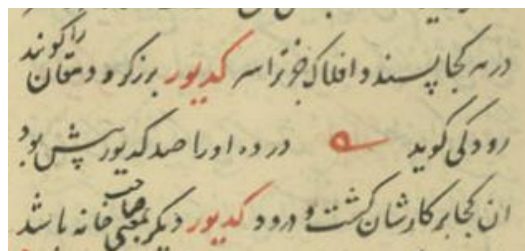 در نه کجا پسند و افلاک جز ترا سر کدیور برزگر و دهقان را گویند
رودکی گوید در ده او را صد کدیور بیش بود
ان کجا بر کارشان کشت و درود کدیور دیگر بمعنی صاحب خانه باشد